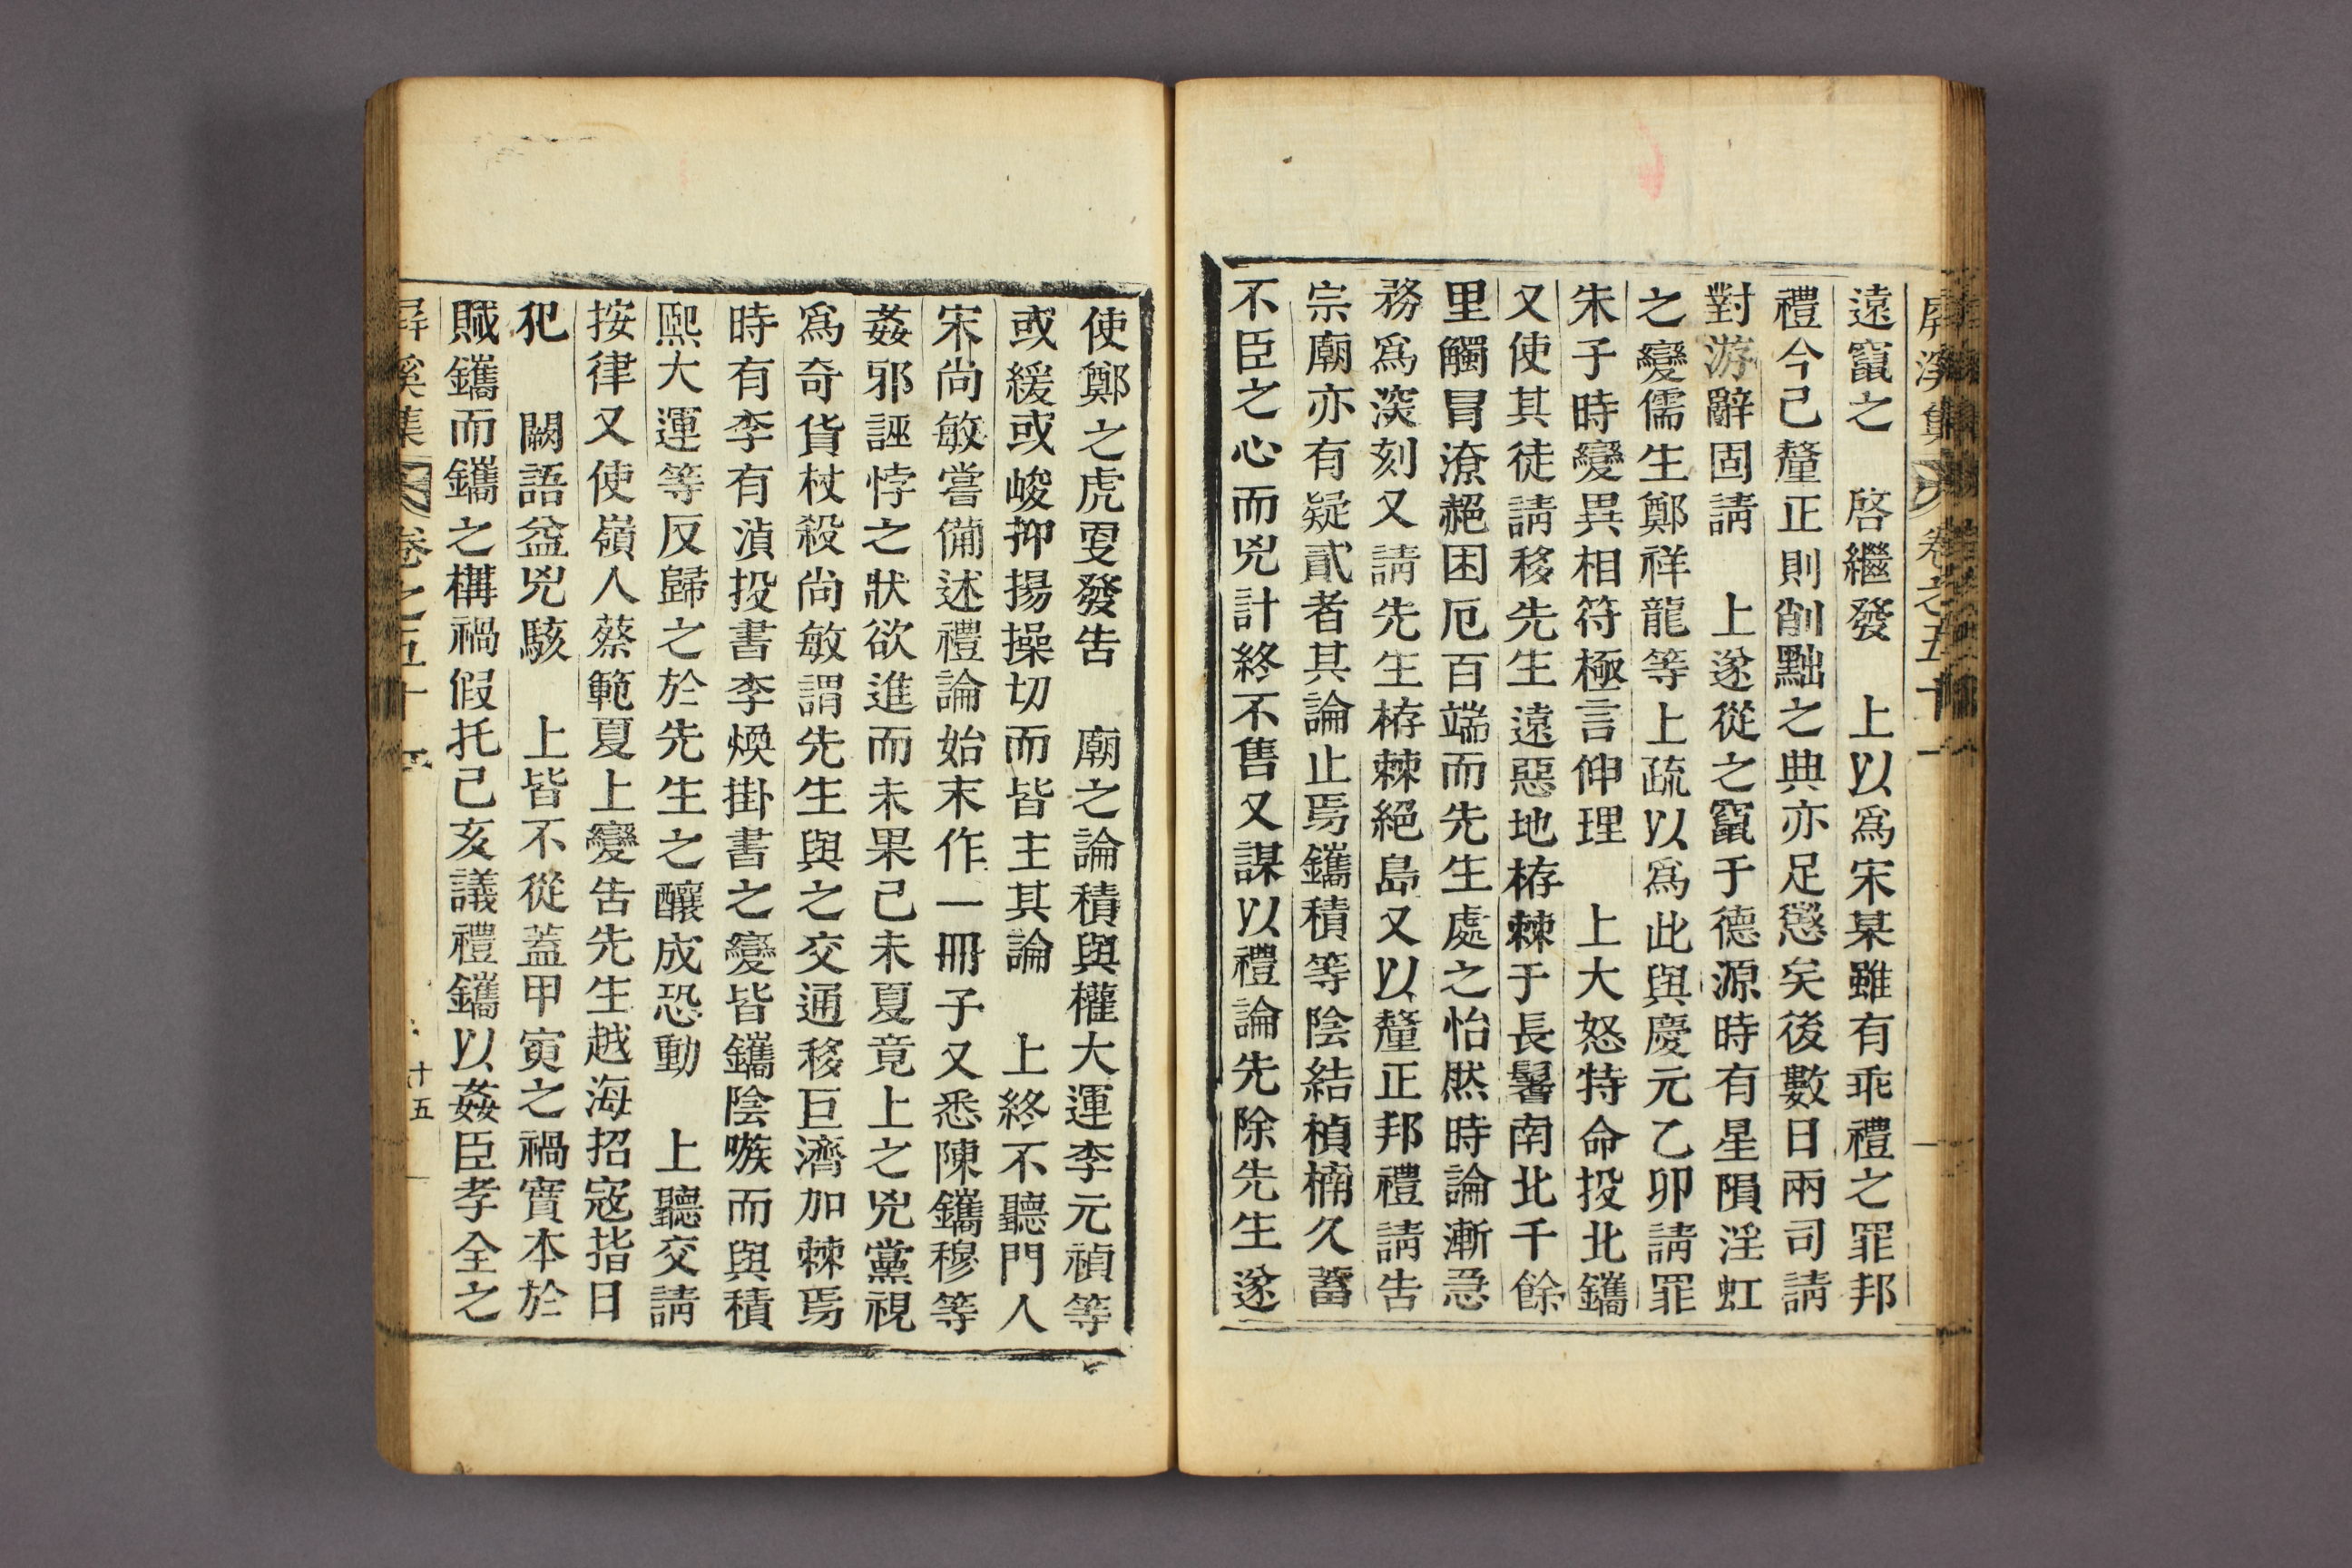 屛溪集 卷之五十一
遠竄之 啓繼發 上以爲宋某雖有乖禮之罪邦
禮今已釐正則削黜之典亦足懲矣後數日兩司請
對游辭固請 上遂從之竄于德源時有星隕淫虹
之變儒生鄭祥龍等上疏以爲此與慶元乙卯請罪
朱子時變異相符極言伸理 上大怒特命投北鑴
又使其徒請移先生遠惡地栫棘于長鬐南北千餘
里觸冒潦𧹞困厄百端而先生處之怡然時論漸急
務爲深刻又請先生栫棘絕島又以釐正邦禮請告
宗廟亦有疑貳者其論止焉鑴積等陰結楨楠久蓄
不臣之心而兇計終不售又謀以禮論先除先生遂
使鄭之虎叓發告 廟之論積與權大運李元禎等
或緩或峻抑揚操切而皆主其論 上終不聽門人
宋尙敏嘗備述禮論始末作一冊子又悉陳鑴穆等
姦邪誣悖之狀欲進而未果己未夏竟上之兇黨視
爲奇貨杖殺尙敏謂先生與之交通移巨濟加棘焉
時有李有湞投書李煥掛書之變皆鑴陰嗾而與積
熙大運等反歸之於先生之釀成恐動 上聽交請
按律又使嶺人蔡範夏上變告先生越海招寇指日
犯 闕語益兇駭 上皆不從蓋甲寅之禍實本於
賊鑴而鑴之構禍假托己亥議禮鑴以姦臣孝全之
屛溪集 卷之五十一 十五